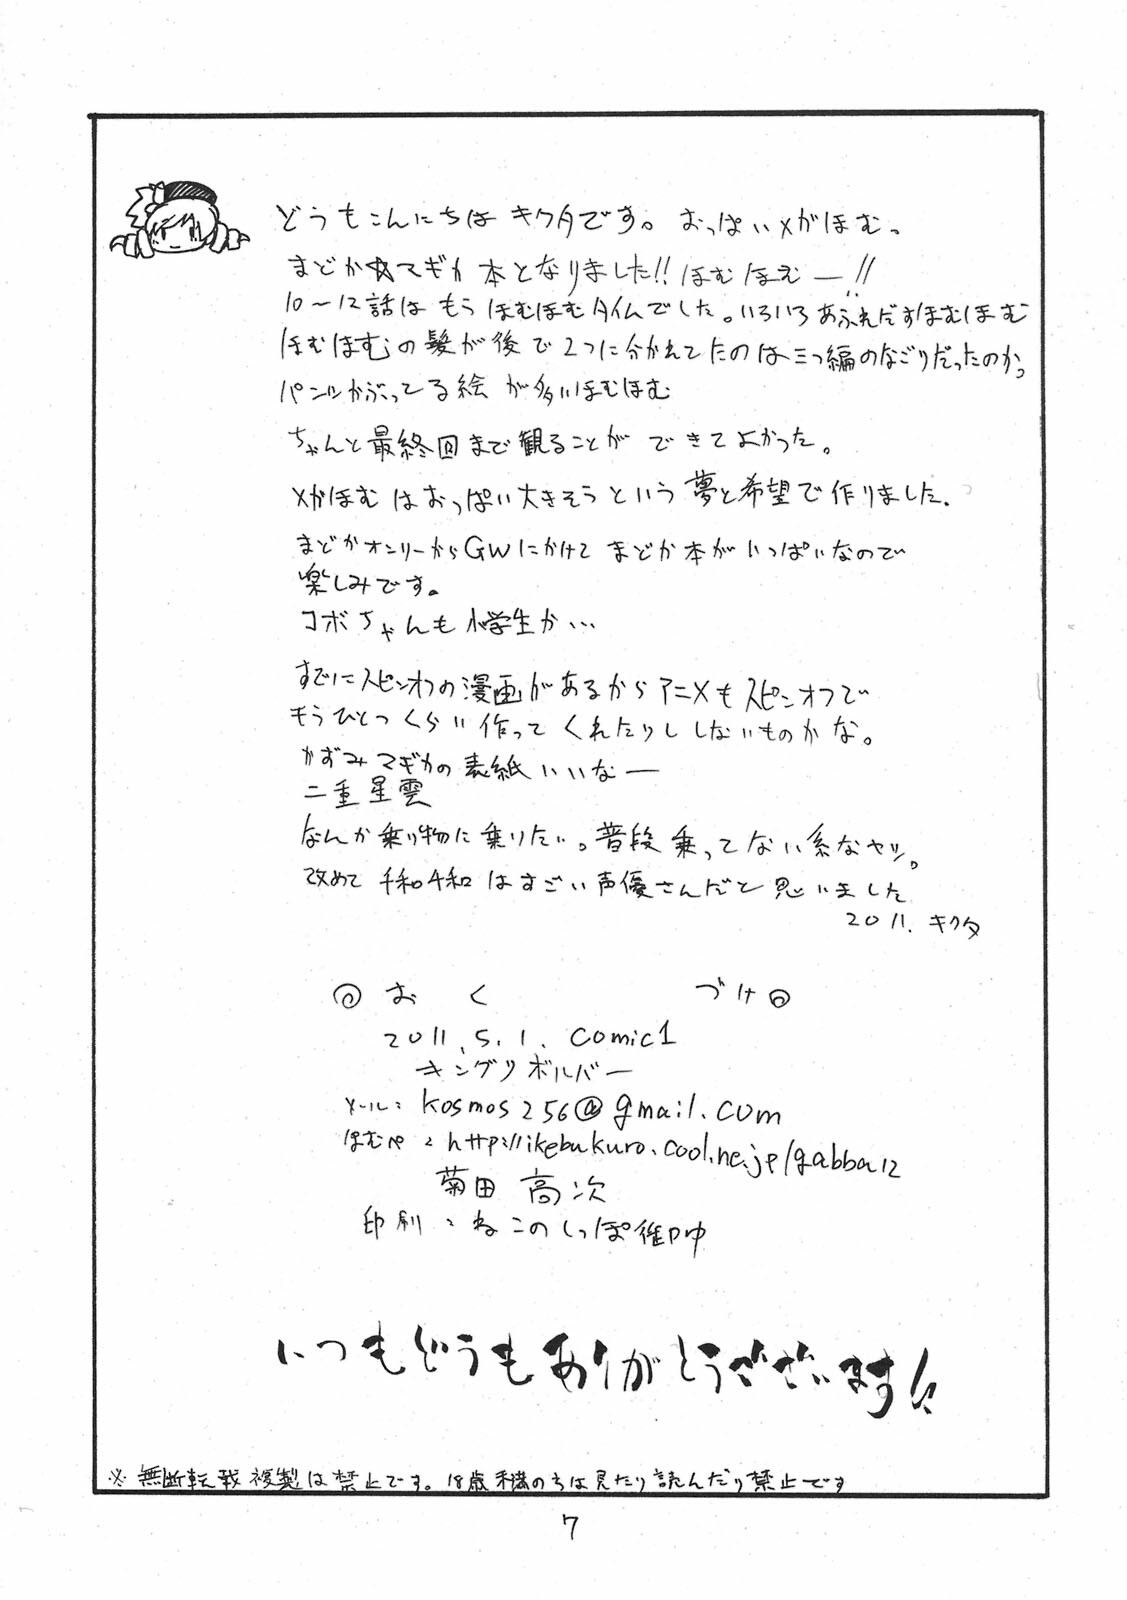 どうもこんにちは キクタです。 おっぱいメガほむっ
まどか☆マギカ 本となりました!! ほむほむー!!
10〜12話は もう ほむほむタイムでした。いろいろあふれだすほむほむ
ほむほむの髪が後で2つに分かれてたのは三つ編のなごりだったのかっ
パンツかぶってる絵 が多いほむほむ
ちゃんと最終回まで観ることが できてよかった。
メガほむ はおっぱい大きそう という 夢と希望で作りました.
まどかオンリーからGWにかけて まどか本がいっぱいなので
楽しみです。
コボちゃんも小学生か…
すでにスピンオフの漫画があるからアニメもスピンオフで
もうひとつくらい作って くれたりし しないものかな。
かずみマギカの表紙いいなー
二重星雲
なんか乗り物に乗りたい。普段 乗ってない系なヤツ。
改めて 千和千和 はすごい声優さんだと 思いました
2011. キクタ
◎ おく づけ◎
2011.5.1. comic1
キングリボルバー
メール: kosmos256@gmail.com
ほむぺ : http://ikebukuro.cool.ne.jp/gabba12
菊田 高次
印刷 : ねこのしっぽ御中
いつもどうもありがとうございます!!
※無断転載複製は禁止です。18歳未満のちは見たり読んだり禁止です
7